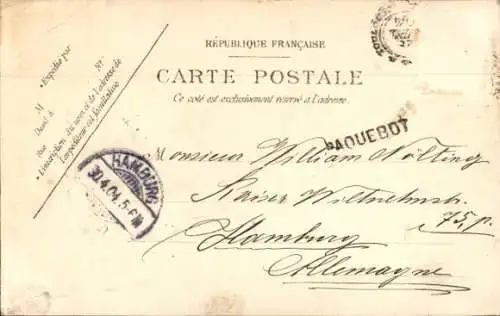 RÉPUBLIQUE FRANÇAISE
CARTE POSTALE
Ce côté est exclusivement réservé à l'adresse.
Expédié par
M
Demt à
Rue
N°
L'inscription du nom et de l'adresse de
l'expéditeur est facultative
PAQUEBOT
HAMBURG
30.4.04.5-6N
Monsieur William Nölting
Kaiser Wilhelmstr.
75, p.
Hamburg
Allemagne